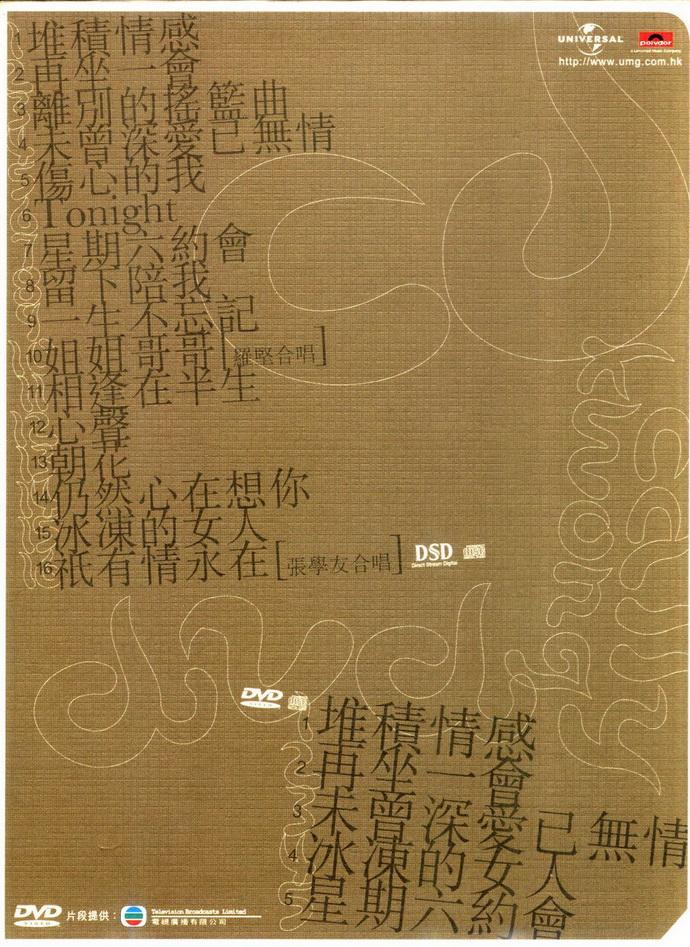 UNIVERSAL
polydor
http://www.umg.com.hk
1 堆積情感
2 再坐一會
3 離別的搖籃曲
4 未曾深愛已無情
5 傷心的我
6 Tonight
7 星期六約會
8 留下陪我
9 一生不忘記
10 姐姐哥哥[羅堅合唱]
11 相逢在半生
12 心聲
13 朝化
14 仍然心在想你
15 冰凍的女人
16 祇有情永在[張學友合唱]
DSD
Direct Stream Digital
cd
kwong
sally
dvd
DVD
VIDEO
1 堆積情感
2 再坐一會
3 未曾深愛已無情
4 冰凍的女人
5 星期六約會
DVD
VIDEO
片段提供：
Television Broadcasts Limited
電視廣播有限公司